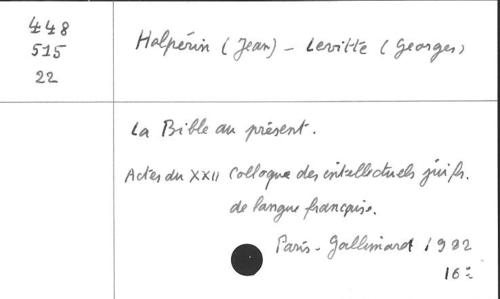 448
515
22
Halpérin (Jean) - Levitte (Georges)
La Bible au présent.
Actes du XXII Colloque des intellectuels juifs.
de langue française.
Paris - Gallimard 1982
16º